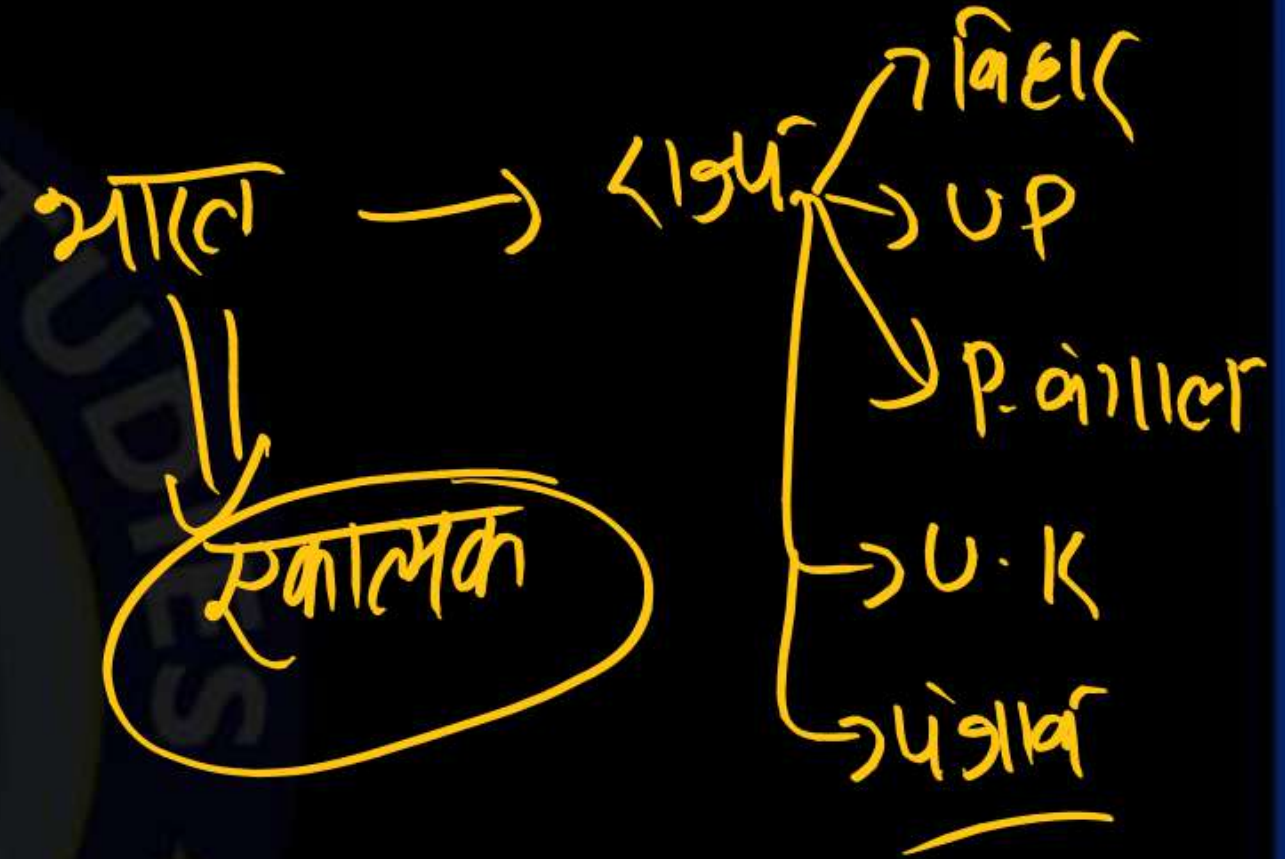 भारत → राज्य
→ बिहार
→ UP
→ P. बंगाल
→ U.K
→ पंजाब
एकात्मक
UDIES